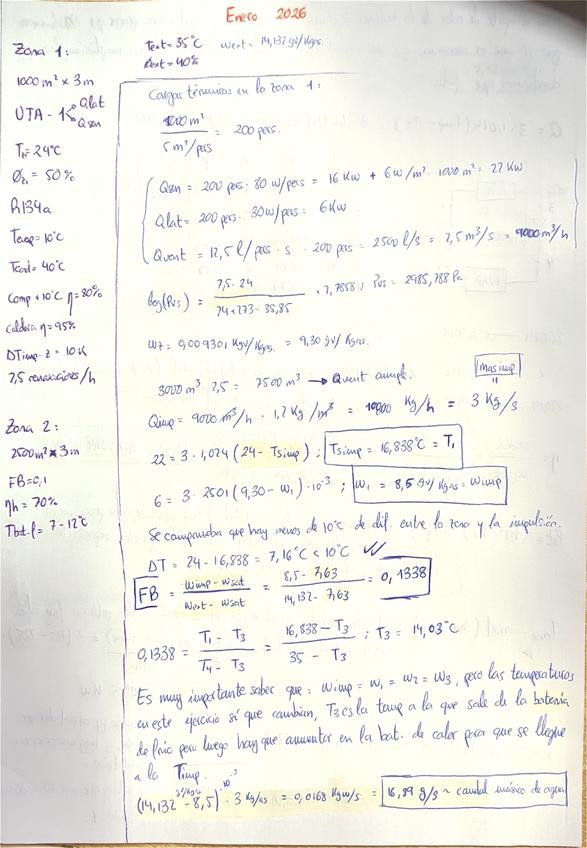 Enero 2026
Zona 1:
1000 m² x 3m
UTA - 1 Qlat
Qsen
Tz1 = 24°C
Øz1 = 50%
R134a
Tevap = 10°C
Tcond = 40°C
Comp +10°C η = 80%
caldera η = 95%
DTimp-z = 10K
2,5 renovaciones/h
Zona 2:
2500m² x 3m
FB = 0,1
ηh = 70%
Tbat.f = 7-12°C
Text = 35°C wext = 14,132 gv/kgas
Øext = 40%
Cargas térmicas en la zona 1:
1000 m² / 5 m²/pers = 200 pers.
Qsen = 200 pers · 80 w/pers = 16 Kw + 6 w/m² · 1000 m² = 22 Kw
Qlat = 200 pers · 30 w/pers = 6 Kw
Qvent = 12,5 l/pers · s · 200 pers = 2500 l/s = 2,5 m³/s = 9000 m³/h
log(Pvs) = 7,5 · 24 / 24 + 273 - 35,85 + 2,7858; Pvs = 2985,788 Pa
wz = 0,009301 Kgv/Kgas = 9,30 gv/Kgas.
3000 m³ · 2,5 = 7500 m³ → Qvent cumple.
mas imp
Qimp = 9000 m³/h · 1,2 Kg/m³ = 10800 Kg/h = 3 Kg/s
22 = 3 · 1,024 (24 - Tsimp); Tsimp = 16,838°C = T1
6 = 3 · 2501 (9,30 - w1) · 10⁻³; w1 = 8,5 gv/Kgas = wimp
Se comprueba que hay menos de 10°C de dif. entre la zona y la impulsión.
DT = 24 - 16,838 = 7,16°C < 10°C ✓✓
FB = wimp - wsat / wext - wsat = 8,5 - 7,63 / 14,132 - 7,63 = 0,1338
0,1338 = T1 - T3 / T4 - T3 = 16,838 - T3 / 35 - T3; T3 = 14,03°C
Es muy importante saber que: wimp = w1 = w2 = w3, pero las temperaturas
en este ejercicio sí que cambian, T3 es la temp a la que sale de la batería
de frío pero luego hay que aumentar en la bat. de calor para que se llegue
a la Timp.
(14,132 - 8,5) gv/kgas · 10⁻³ · 3 Kg/as = 0,0168 Kgw/s = 16,89 g/s ~ caudal másico de agua